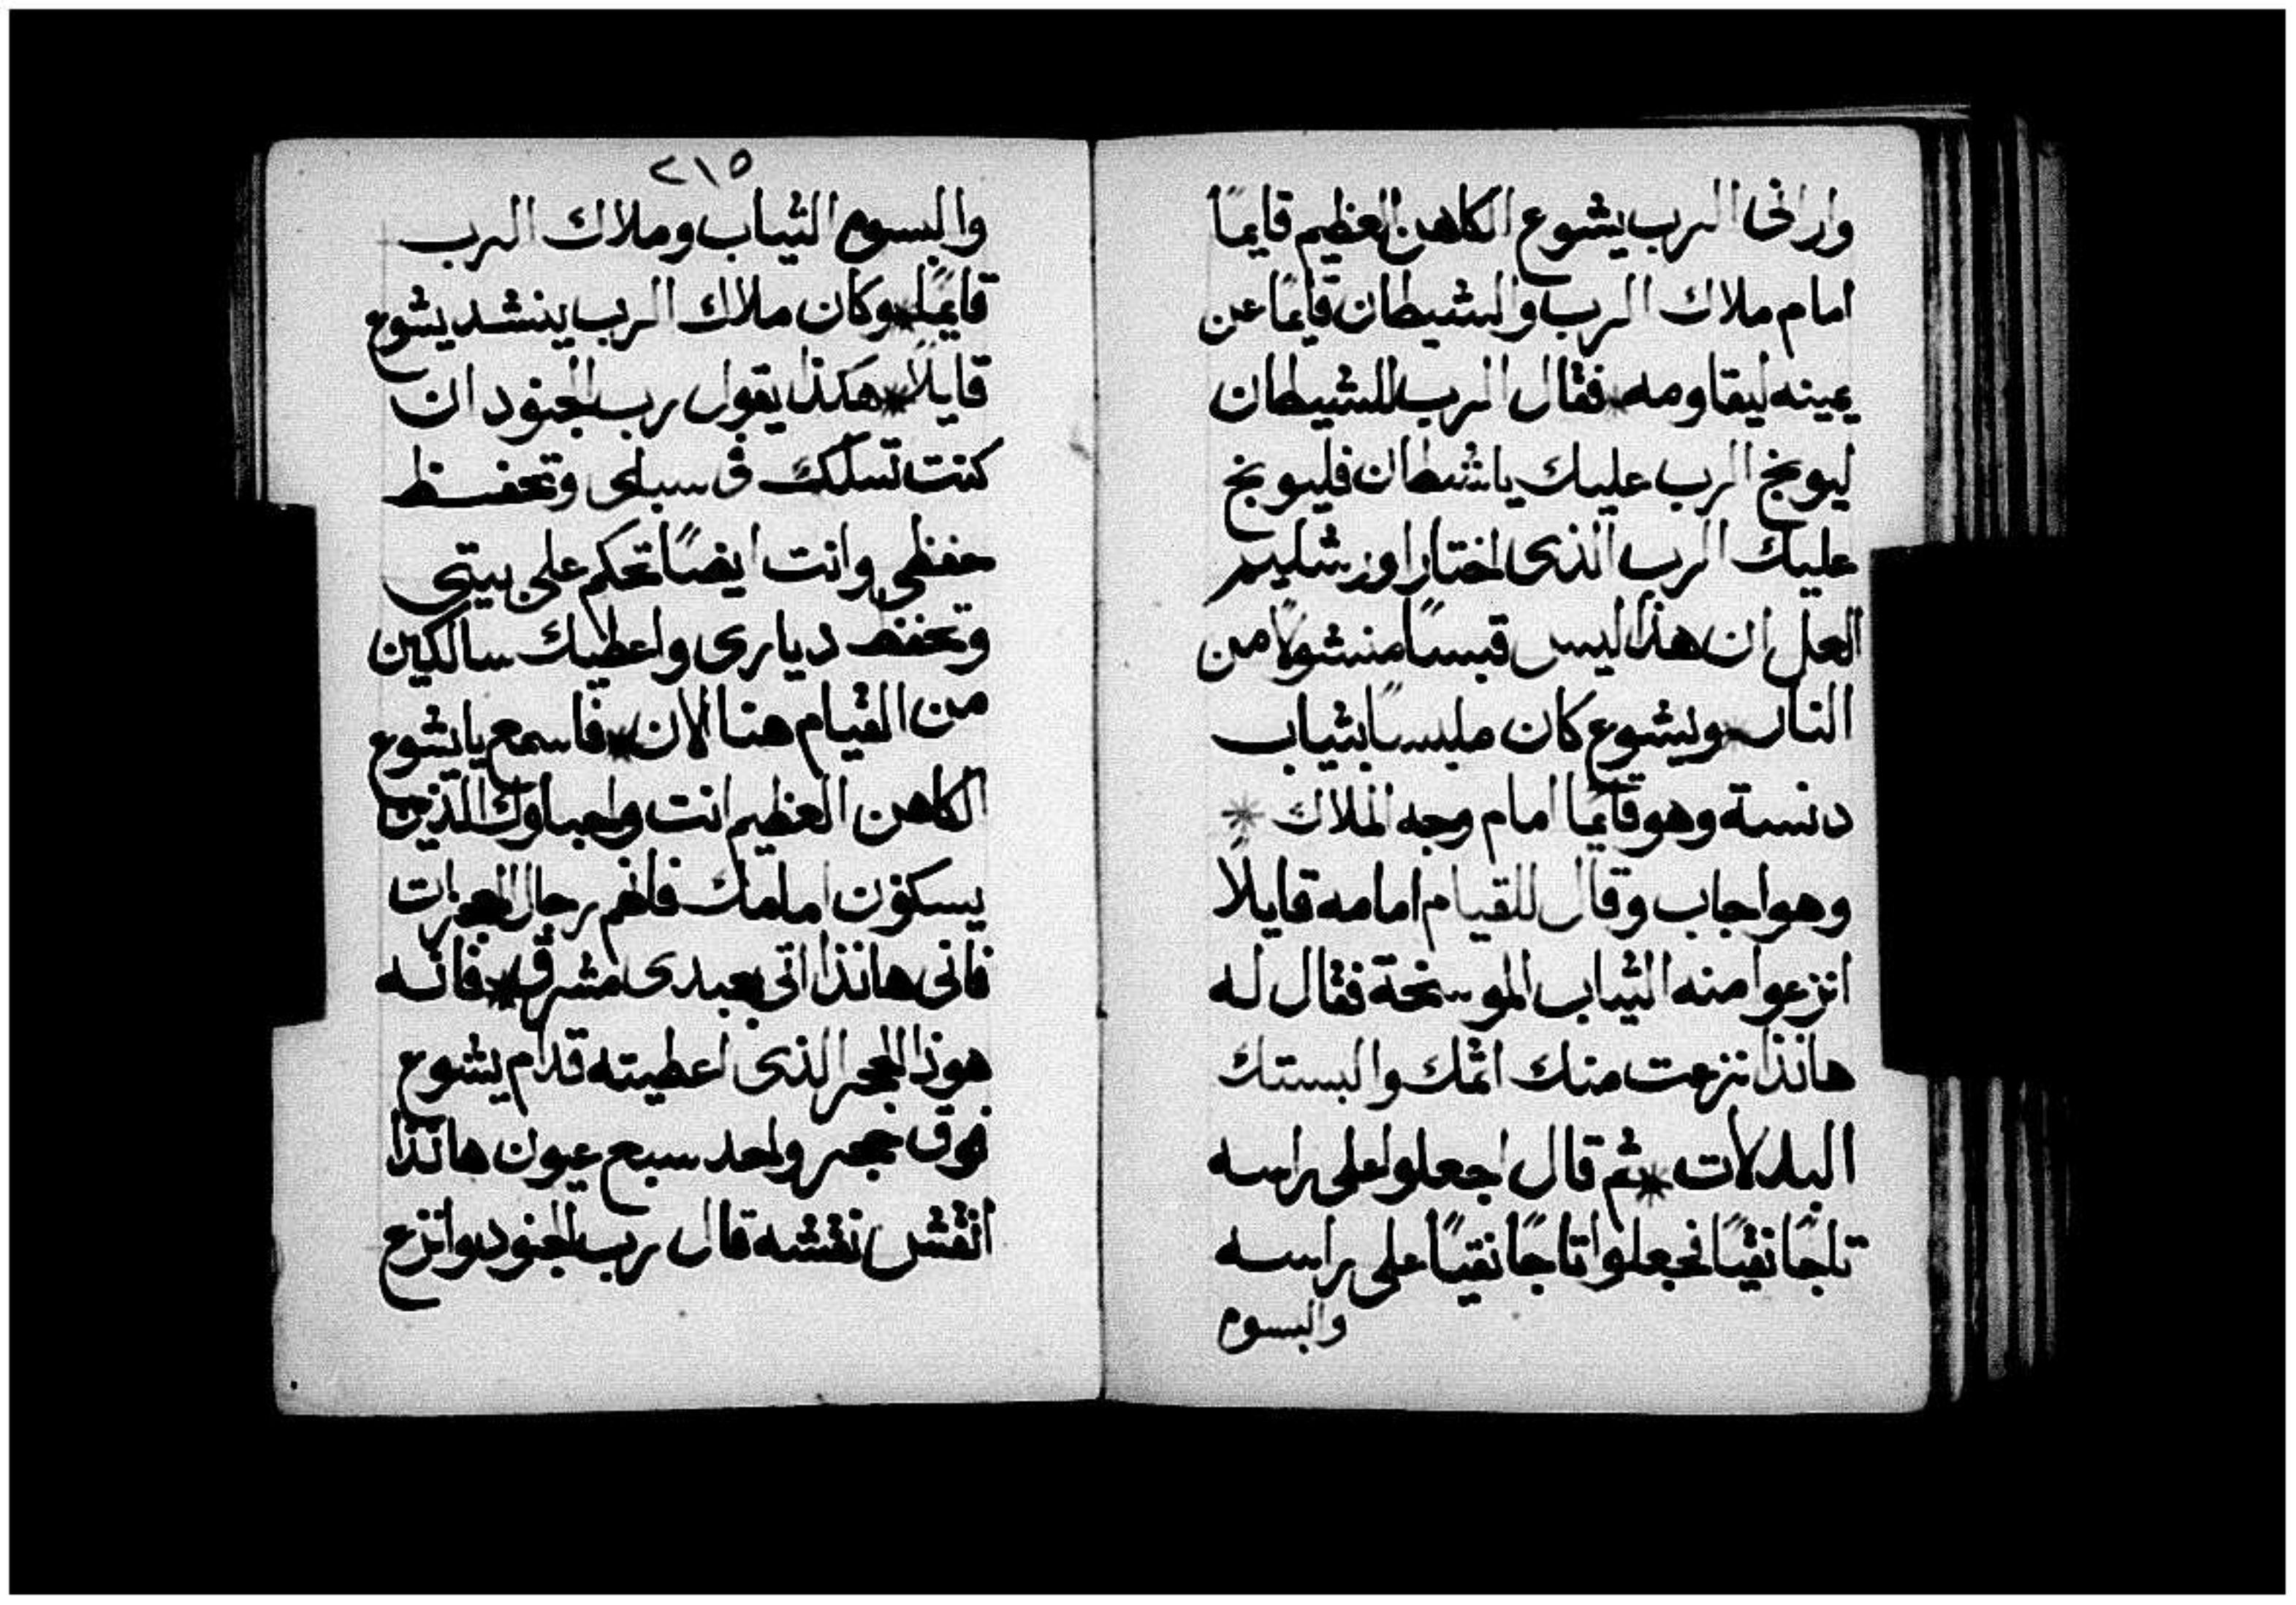 وارانى الرب يشوع الكاهن العظيم قايمًا
امام ملاك الرب والشيطان قايمًا عن
يمينه ليقاومه * فقال الرب للشيطان
ليوبخ الرب عليك ياشيطان فليوبخ
عليك الرب الذى اختار اورشليم
العل ان هذا ليس قبسًا منشولًا من
النار * ويشوع كان ملبسًا بثياب
دنسة وهو قايمًا امام وجه الملاك *
وهو اجاب وقال للقيام امامه قايلًا
انزعوا منه الثياب الموسخة فقال له
هانذا نزعت منك اثمك والبستك
البدلات * ثم قال اجعلوا على راسه
تاجًا نقيًا فجعلوا تاجًا نقيًا على راسه
والبسوم
٢١٥
والبسوم الثياب وملاك الرب
قايمًا * وكان ملاك الرب ينشد يشوع
قايلًا * هكذا يقول رب الجنود ان
كنت تسلك فى سبلى وتحفظ
حفظى وانت ايضًا تحكم على بيتى
وتحفظ ديارى واعطيك سالكين
من القيام هنا الان * فاسمع يا يشوع
الكاهن العظيم انت واحباوك الذين
يسكنون امامك فانهم رجال المعجزات
فانى هانذا اتى بعبدى مشرق * فانه
هوذا الحجر الذى اعطيته قدام يشوع
فوق حجر واحد سبع عيون هانذا
انقش نقشه قال رب الجنود وانزع